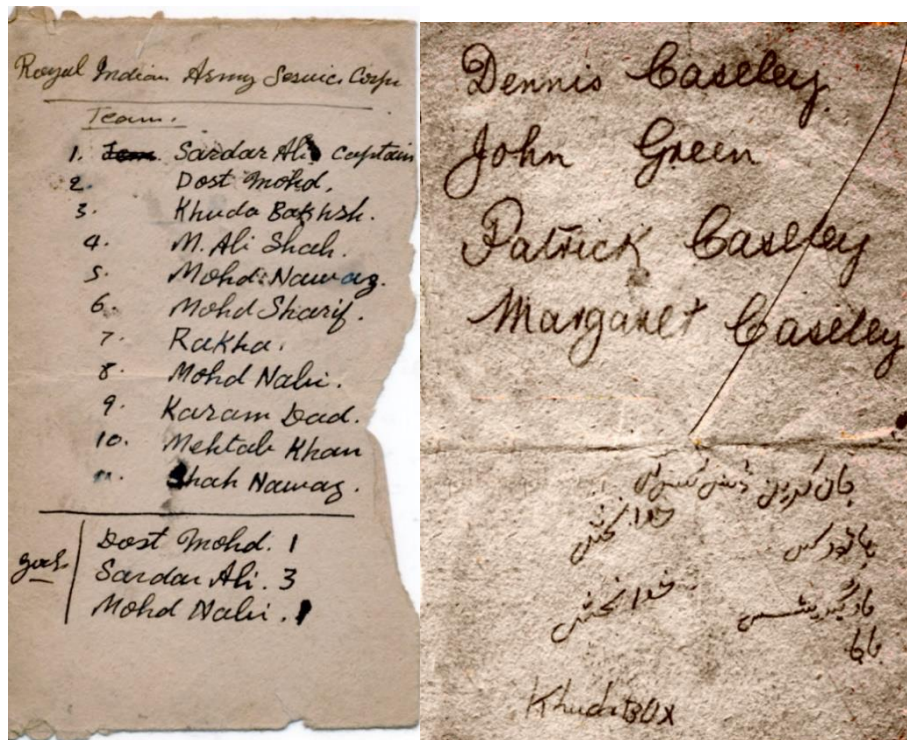 Royal Indian Army Service Corps
Team.
1. Sardar Ali Captain
2. Dost Mohd.
3. Khuda Bakhsh.
4. M. Ali Shah.
5. Mohd. Nawaz.
6. Mohd Sharif.
7. Rakha.
8. Mohd Nabi.
9. Karam Dad.
10. Mehtab Khan
11. Shah Nawaz.
Goals
Dost Mohd. 1
Sardar Ali. 3
Mohd Nabi. 1
Dennis Caseley
John Green
Patrick Caseley
Margaret Caseley
جان گرین
خدا بخش
خدا بخش
Khuda Bux